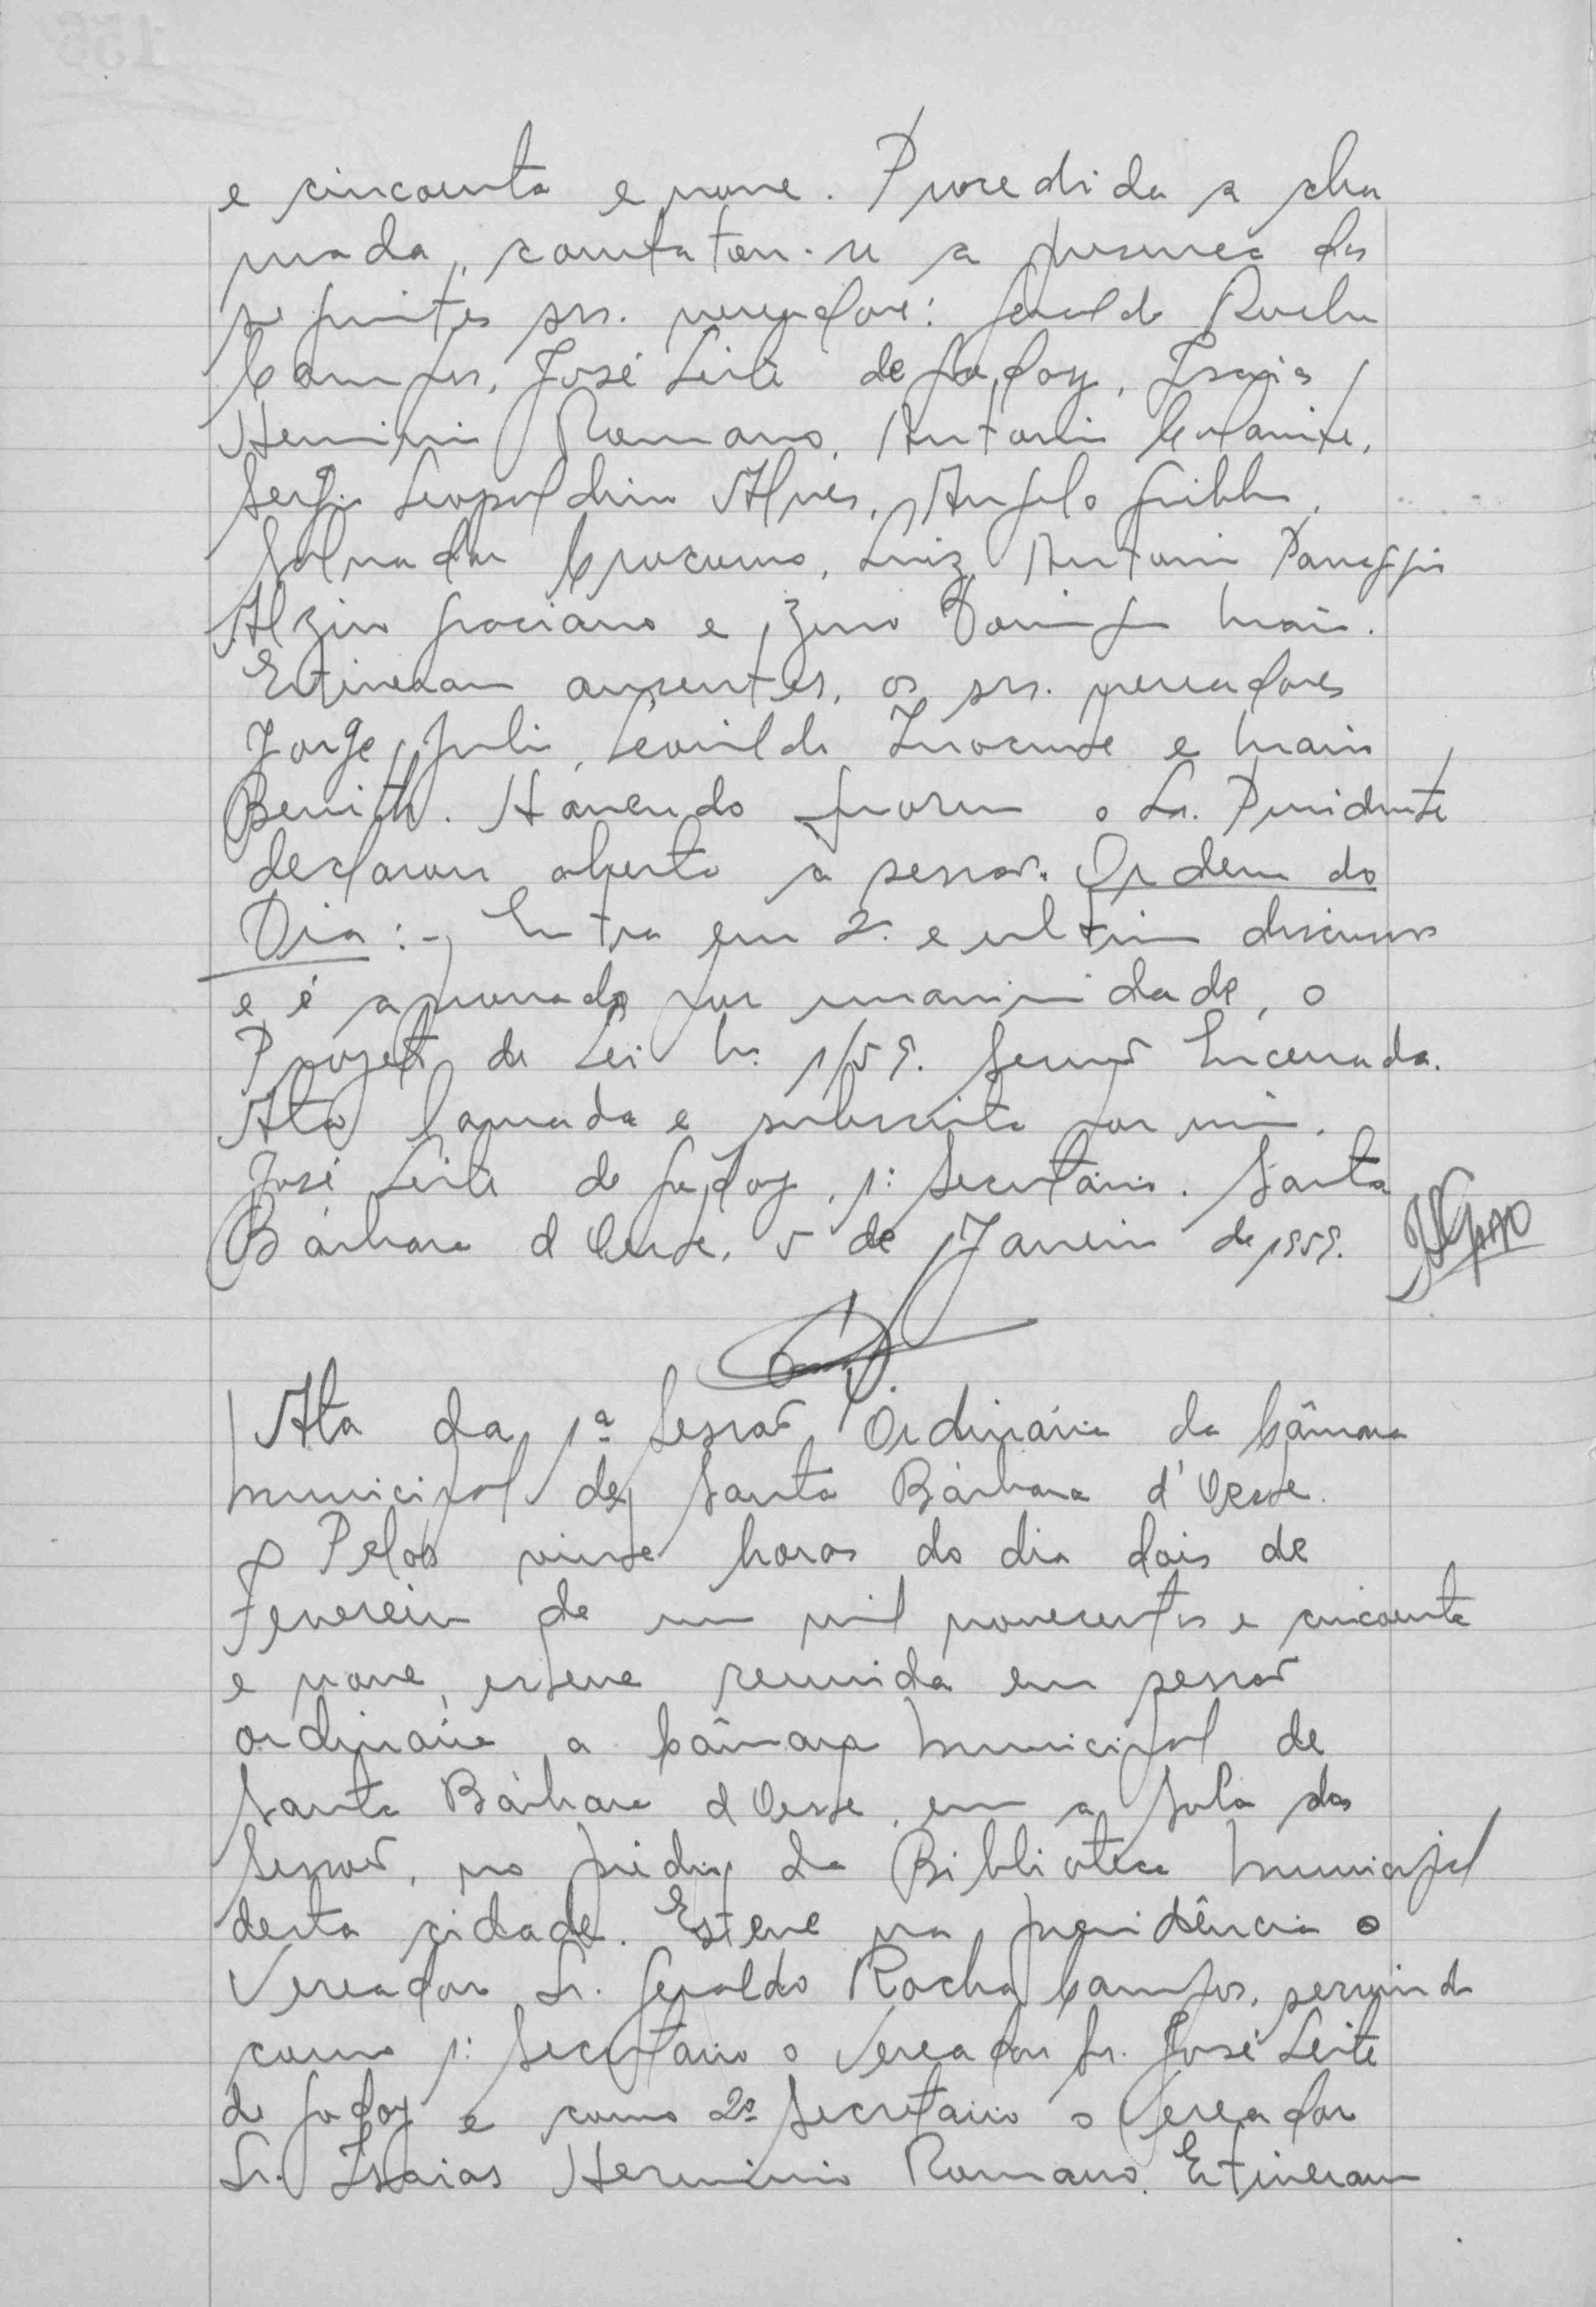 e cincoenta e nove. Procedida a cha
mada, constatou-se a presença dos
seguintes srs. vereadores: Geraldo Rocha
Campos, José Leite de Godoy, Isaias
Herminio Romano, Antonio
Sergio Leopoldino Alves, Angelo Giubbina,
Salvador Luiz Antonio Panaggio
Alziro Graciano e Zeno Domingos Maia.
Estiveram ausentes, os srs. vereadores
Jorge Juli, Leovildo Inocente e Mario
Benith. Havendo quorum o Sr. Presidente
declarou aberta a sessão. Ordem do
Dia:- Entra em 2ª e ultima discussão
e é aprovado por unanimidade, o
Projeto de Lei Nº 1/59. Sessão Encerrada.
Ata lavrada e subscrita por mim.
José Leite de Godoy, 1º Secretário. Santa
Bárbara d'Oeste, 5 de Janeiro de 1959.
Ata da 1ª Sessão Ordinária da Câmara
Municipal de Santa Bárbara d'Oeste.
Pelas vinte horas do dia dois de
Fevereiro de um mil novecentos e cincoenta
e nove, esteve reunida em sessão
ordinária a Câmara Municipal de
Santa Bárbara d'Oeste, em a Sala das
Sessões, no prédio da Biblioteca Municipal
desta cidade. Esteve na presidência o
Vereador Sr. Geraldo Rocha Campos, servindo
como 1º Secretário o Vereador Sr. José Leite
de Godoy e como 2º Secretário o Vereador
Sr. Isaias Herminio Romano. Estiveram